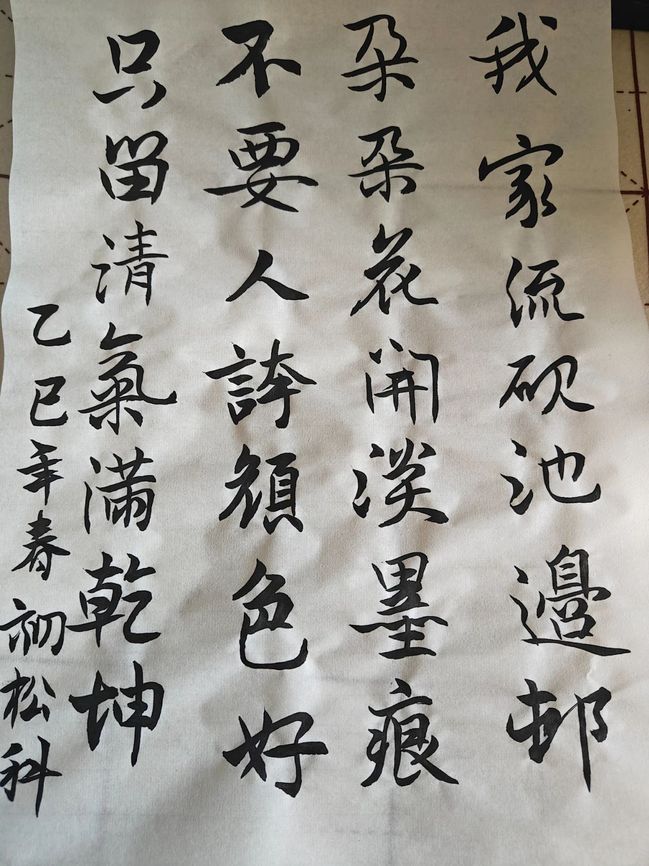 我家流砚池邊邨
朵朵花開淡墨痕
不要人誇顔色好
只留清氣滿乾坤
乙巳年春初松科